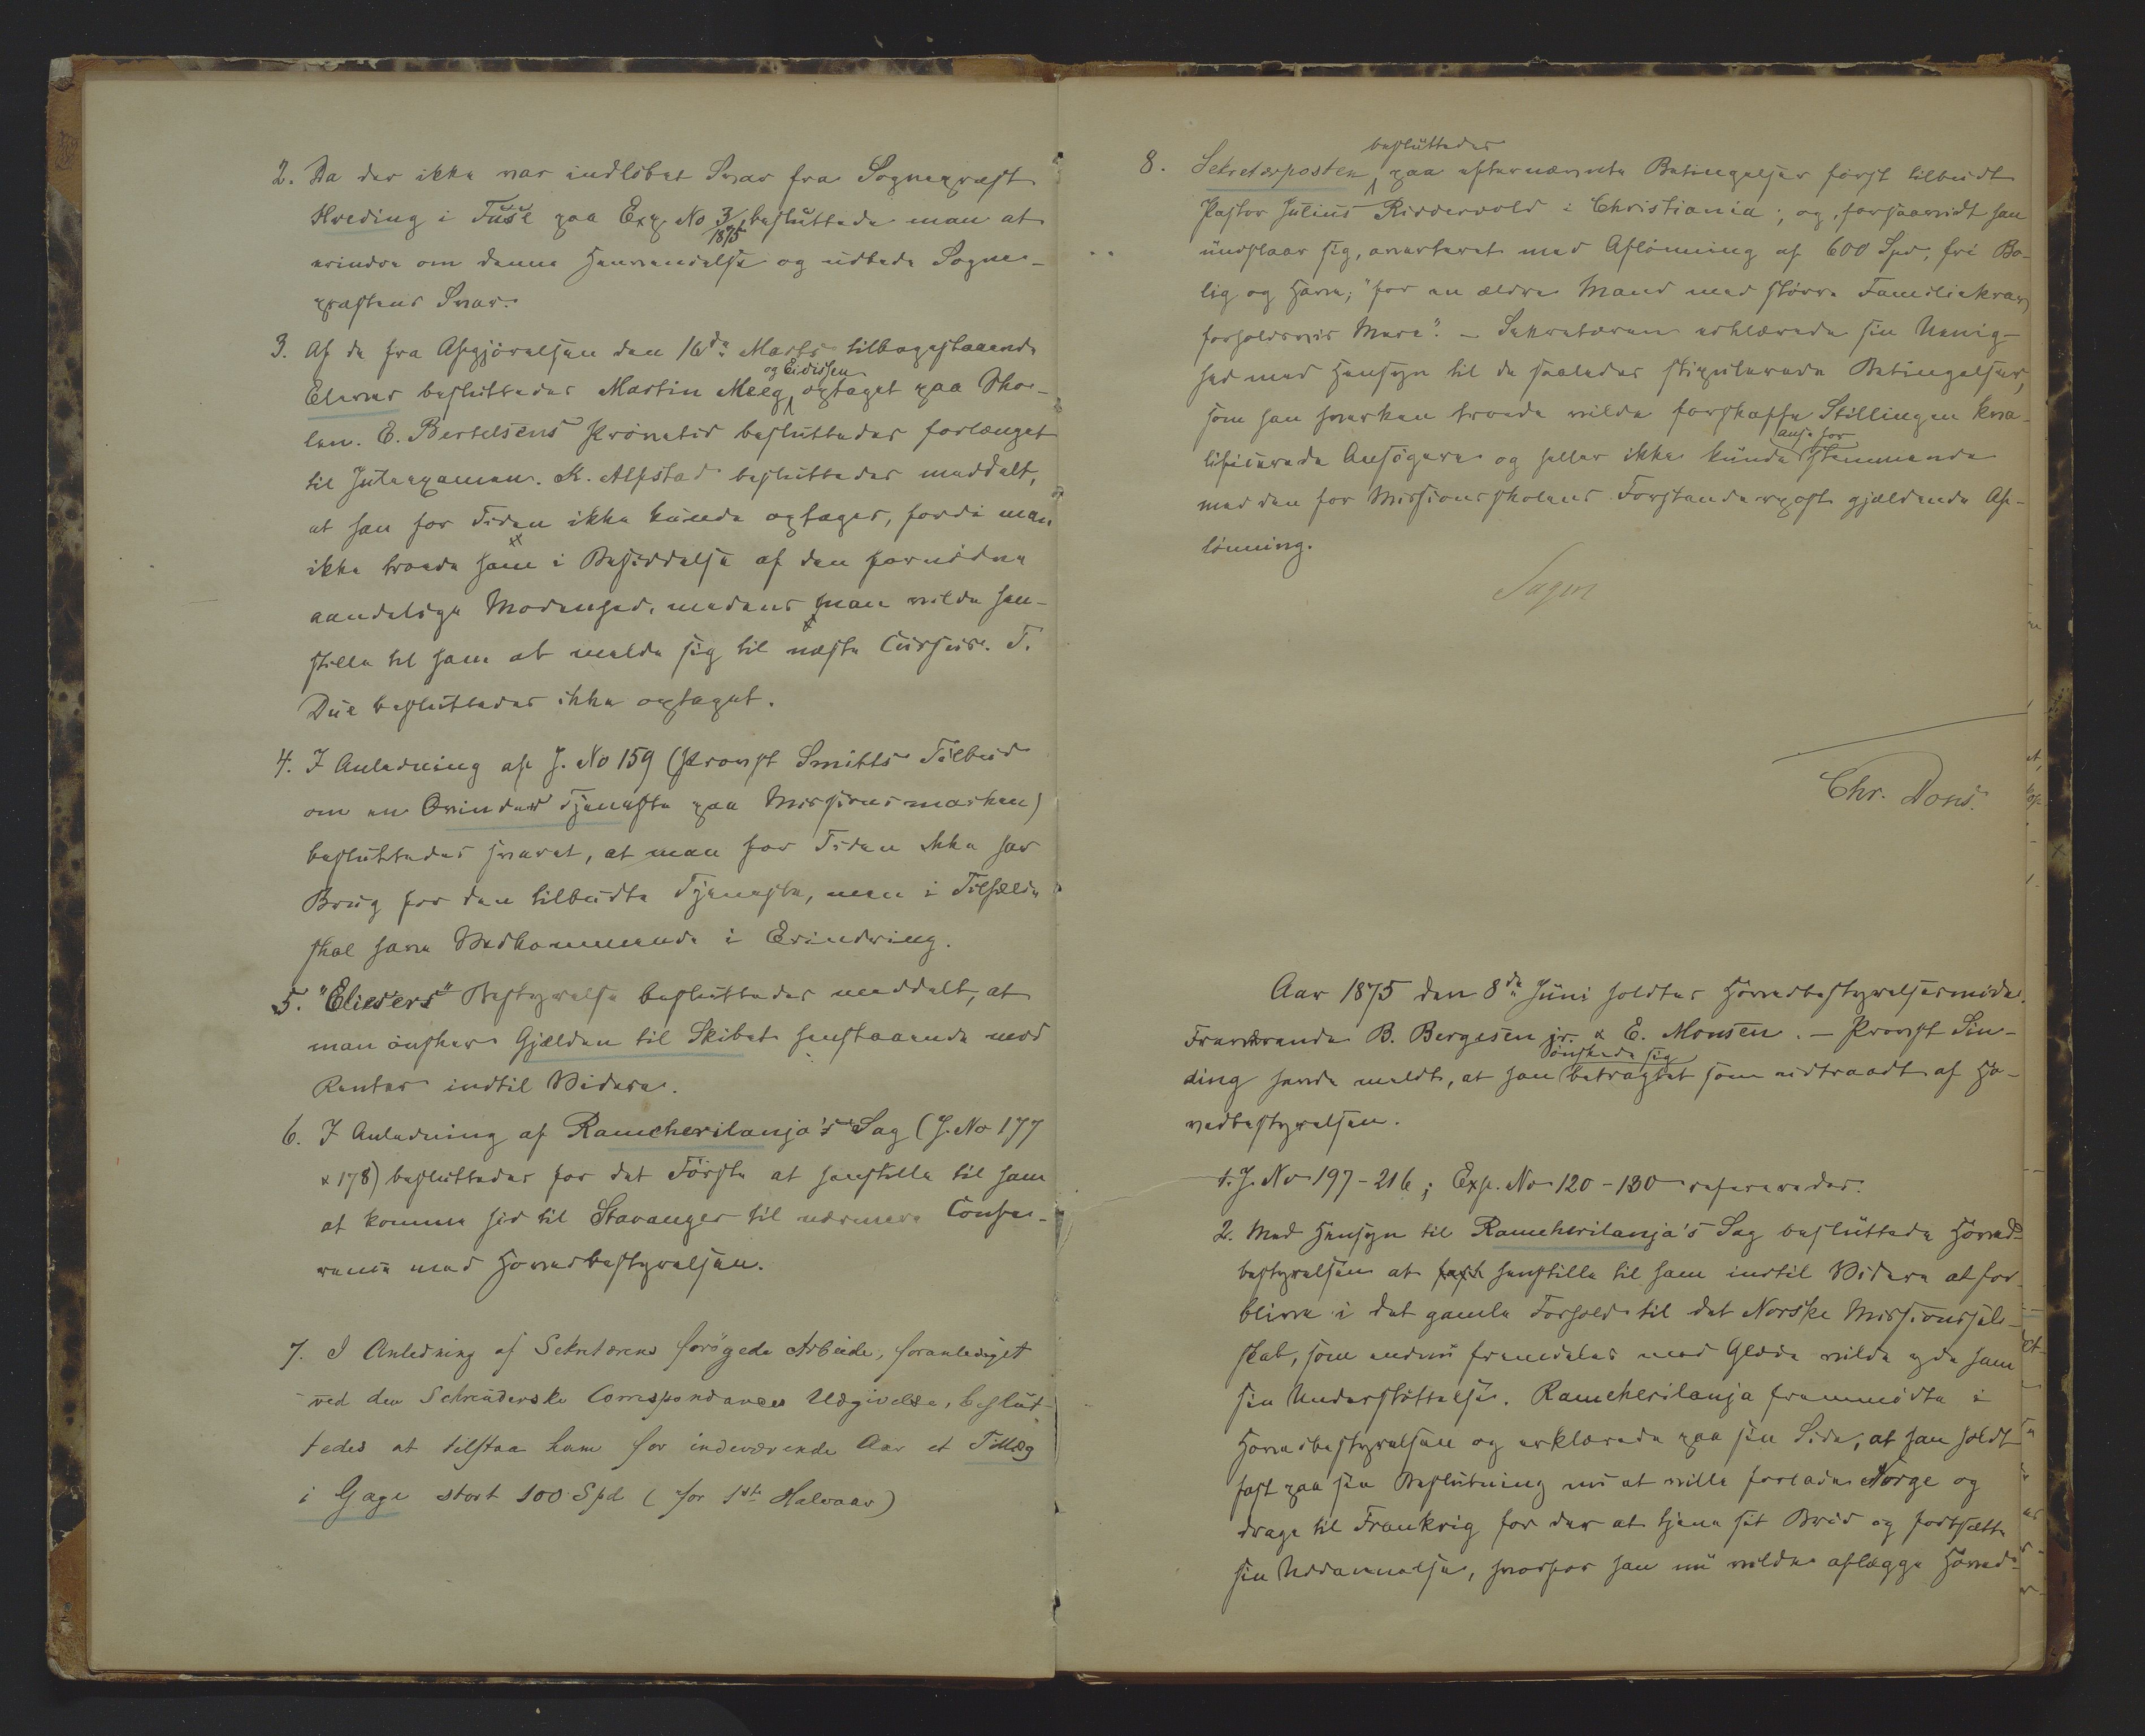 2. Da der ikke var indlöbet Svar fra Sognepræst
Hveding i Fuse paa Exp. No 3/1875, besluttede man at
erindre om denne Henvendelse og udbede Sogne-
præstens Svar.
3. Af de fra Afgjörelsen den 16de Marts tilbagestaaende
Elever besluttedes Martin Meeg og Eidissen optaget paa Sko-
len. E. Bertelsens Prövetid besluttedes forlænget
til Juleexamen. K. Alfstad besluttedes meddelt,
at han for Tiden ikke kunde optages, fordi man
ikke troede ham i Besiddelse af den fornödne
aandelige Modenhed, medens man vilde hen-
stille til ham at melde sig til næste Cursus. T.
Due besluttedes ikke optaget.
4. I Anledning af J. No 159 (Provst Smitts Tilbud
om en Qvindes Tjeneste paa Missionsmarken)
besluttedes svaret, at man for Tiden ikke har
Brug for den tilbudte Tjeneste, men i Tilfælde
skal have Vedkommende i Erindring.
5. "Eliesers" Bestyrelse besluttedes meddelt, at
man önsker Gjælden til Skibet henstaaende mod
Renter indtil Videre.
6. I Anledning af Rameherilanja's Sag (J. No 177
& 178) besluttedes for det Förste at henstille til ham
at komme hid til Stavanger til nærmere Confe-
rence med Hovedbestyrelsen.
7. I Anledning af Sekretærens forögede Arbeide, foranlediget
ved den Schreuderske Correspondances Udgivelse, beslut-
tedes at tilstaa ham for indeværende Aar et Tillæg
i Gage stort 100 Spd (for 1ste Halvaar)
8. Sekretærposten besluttedes paa efternævnte Betingelser först tilbudt
Pastor Julius Riddervold i Christiania; og, forsaavidt han
undslaar sig, averteret med Aflönning af 600 Spd, fri Bo-
lig og Have; "for en ældre Mand med större Familiekrav
forholdsvis Mere". – Sekretæren erklærede sin Uenig-
hed med Hensyn til de saaledes stipulerede Betingelser,
som han hverken troede vilde forskaffe Stillingen kva-
lificerede Ansögere og heller ikke kunde anse for stemmende
med den for Missionsskolens Forstanderpost gjældende Af-
lönning.
Sagen
Chr. Dons.
Aar 1875 den 8de Juni holdtes Hovedbestyrelsesmöde.
Fraværende B. Bergesen jr. & E. Monsen. – Provst Sin-
ding havde meldt, at han önskede sig betragtet som udtraadt af Ho-
vedbestyrelsen.
1. J. No 197-216; Exp. No 120-130 refereredes.
2. Med Hensyn til Rameherilanja's Sag besluttede Hoved-
bestyrelsen at henstille til ham indtil Videre at for-
blive i det gamle Forhold til det Norske Missionssel-
skab, som endnu fremdeles med Glæde vilde yde ham
sin Understöttelse. Rameherilanja fremmödte i
Hovedbestyrelsen og erklærede paa sin Side, at han holdt
fast paa sin Beslutning nu at ville forlade Norge og
drage til Frankrig for der at tjene sit Bröd og fortsætte
sin Uddannelse, hvorfor han nu vilde aflægge Hoved-